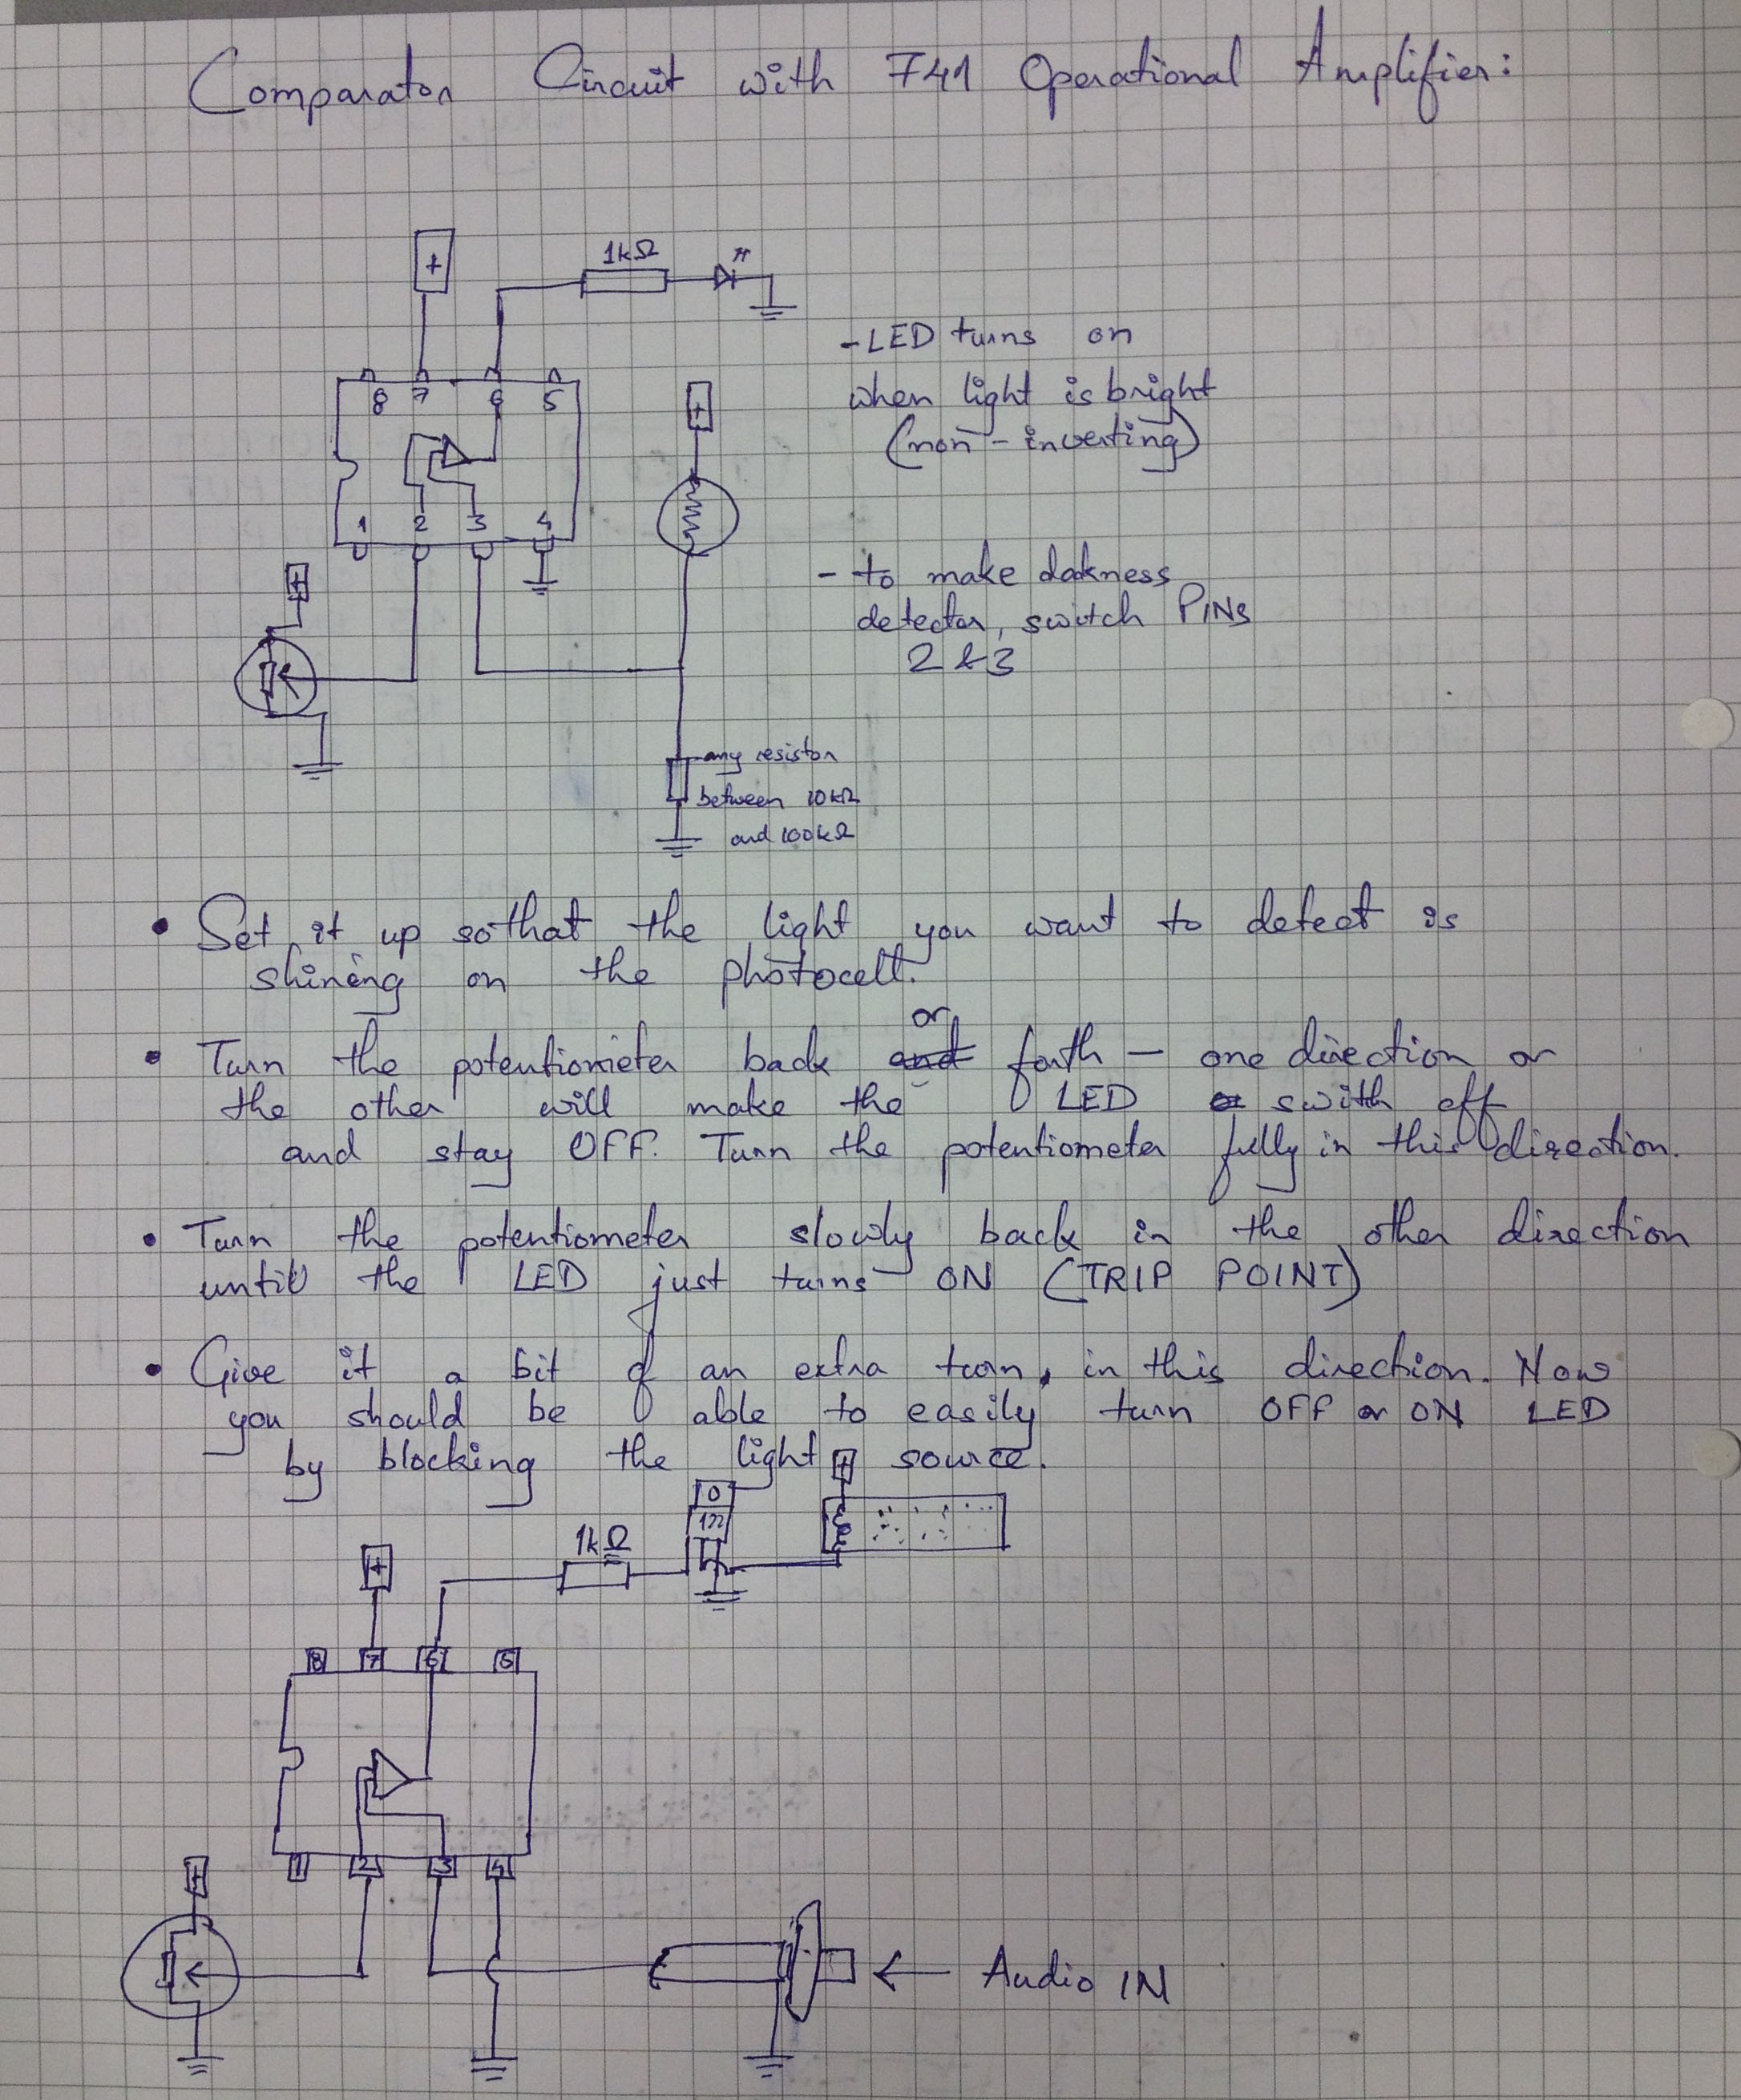 Comparator Circuit with 741 Operational Amplifier:
+
1kΩ
-LED turns on
when light is bright
(non-inverting)
8 7 6 5
+
1 2 3 4
+
- to make darkness
detector, switch PINs
2 & 3
any resistor
between 10kΩ
and 100kΩ
• Set it up so that the light you want to detect is
shining on the photocell.
• Turn the potentiometer back and or forth — one direction or
the other will make the LED swith off
and stay OFF. Turn the potentiometer fully in this direction.
• Turn the potentiometer slowly back in the other direction
until the LED just turns ON (TRIP POINT)
• Give it a bit of an extra turn, in this direction. Now
you should be able to easily turn OFF or ON LED
by blocking the light source.
+
1kΩ
+
8 7 6 5
1 2 3 4
+
← Audio IN